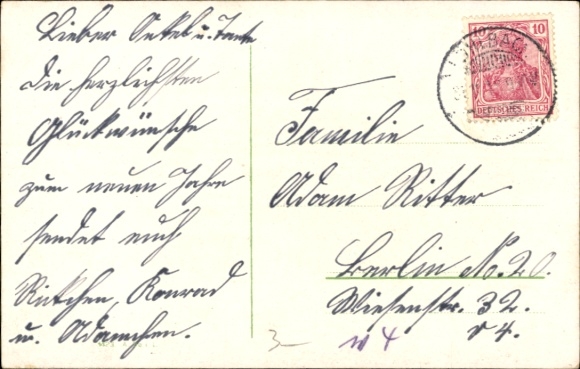 Lieber Onkel u. Tante
die herzlichsten
Glückwünsche
zum neuen Jahre
sendet euch
Konrad
u. Adamchen.
Familie
Adam Ritter
Berlin N. 20.
Wiesenstr. 32.
v 4.
3-
10 10
DEUTSCHES REICH